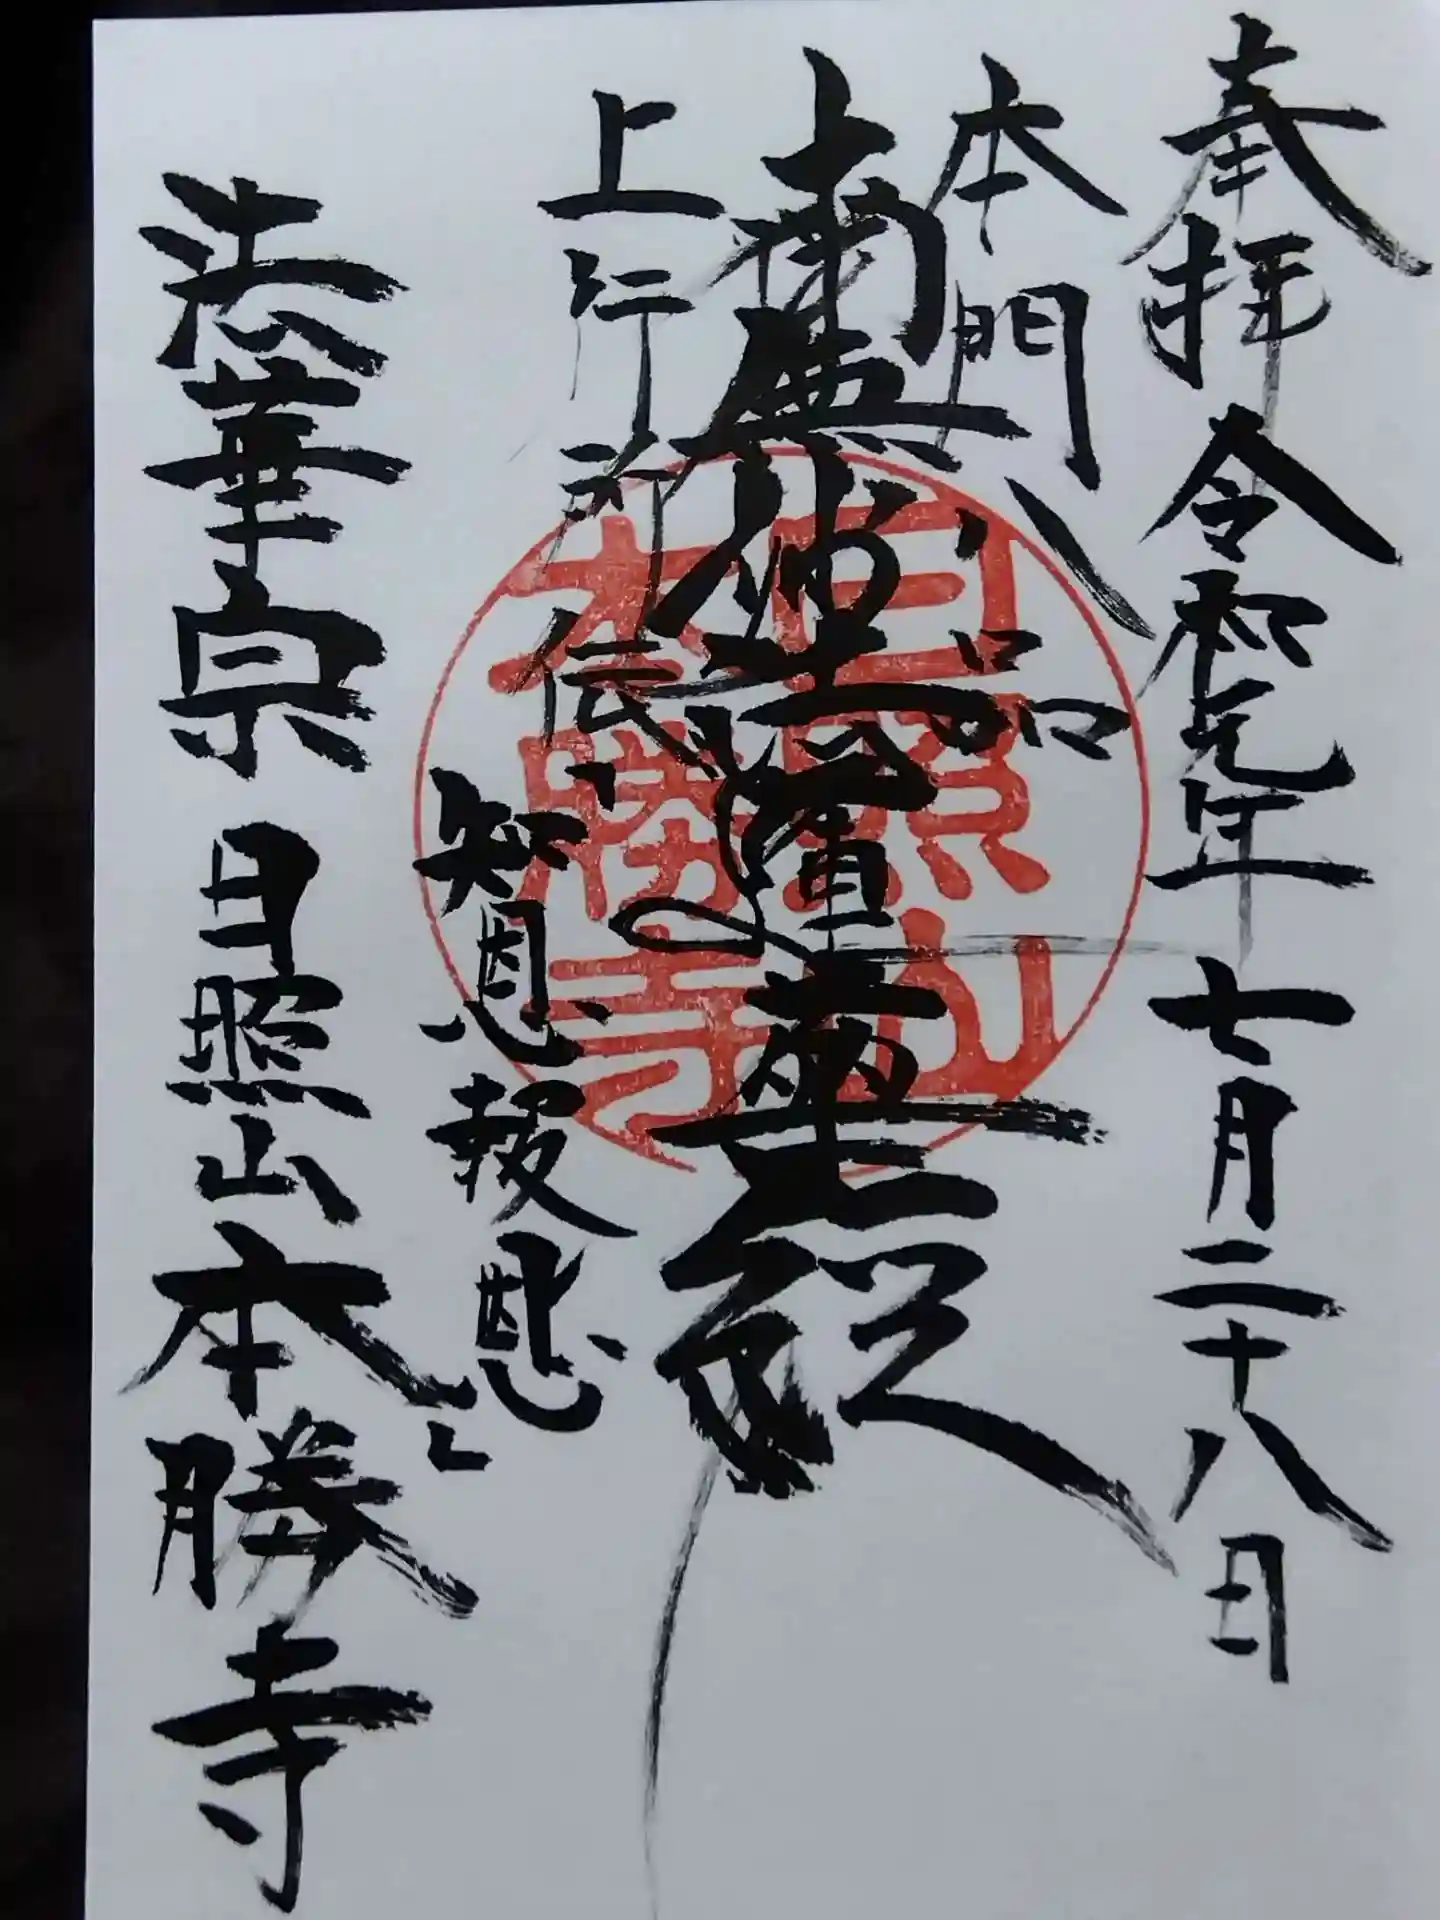 奉拝 令和元年 七月二十八日
本門八品
南無妙法蓮華経
上行所伝
知恩報恩
法華宗 日照山 本勝寺
日照山
本勝寺